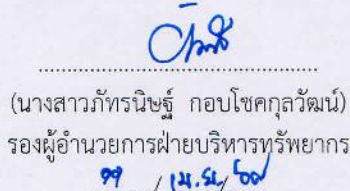 (นางสาวภัทรนิษฐ์ กอบโชคกุลวัฒน์)
รองผู้อำนวยการฝ่ายบริหารทรัพยากร
/ เม.ย. /